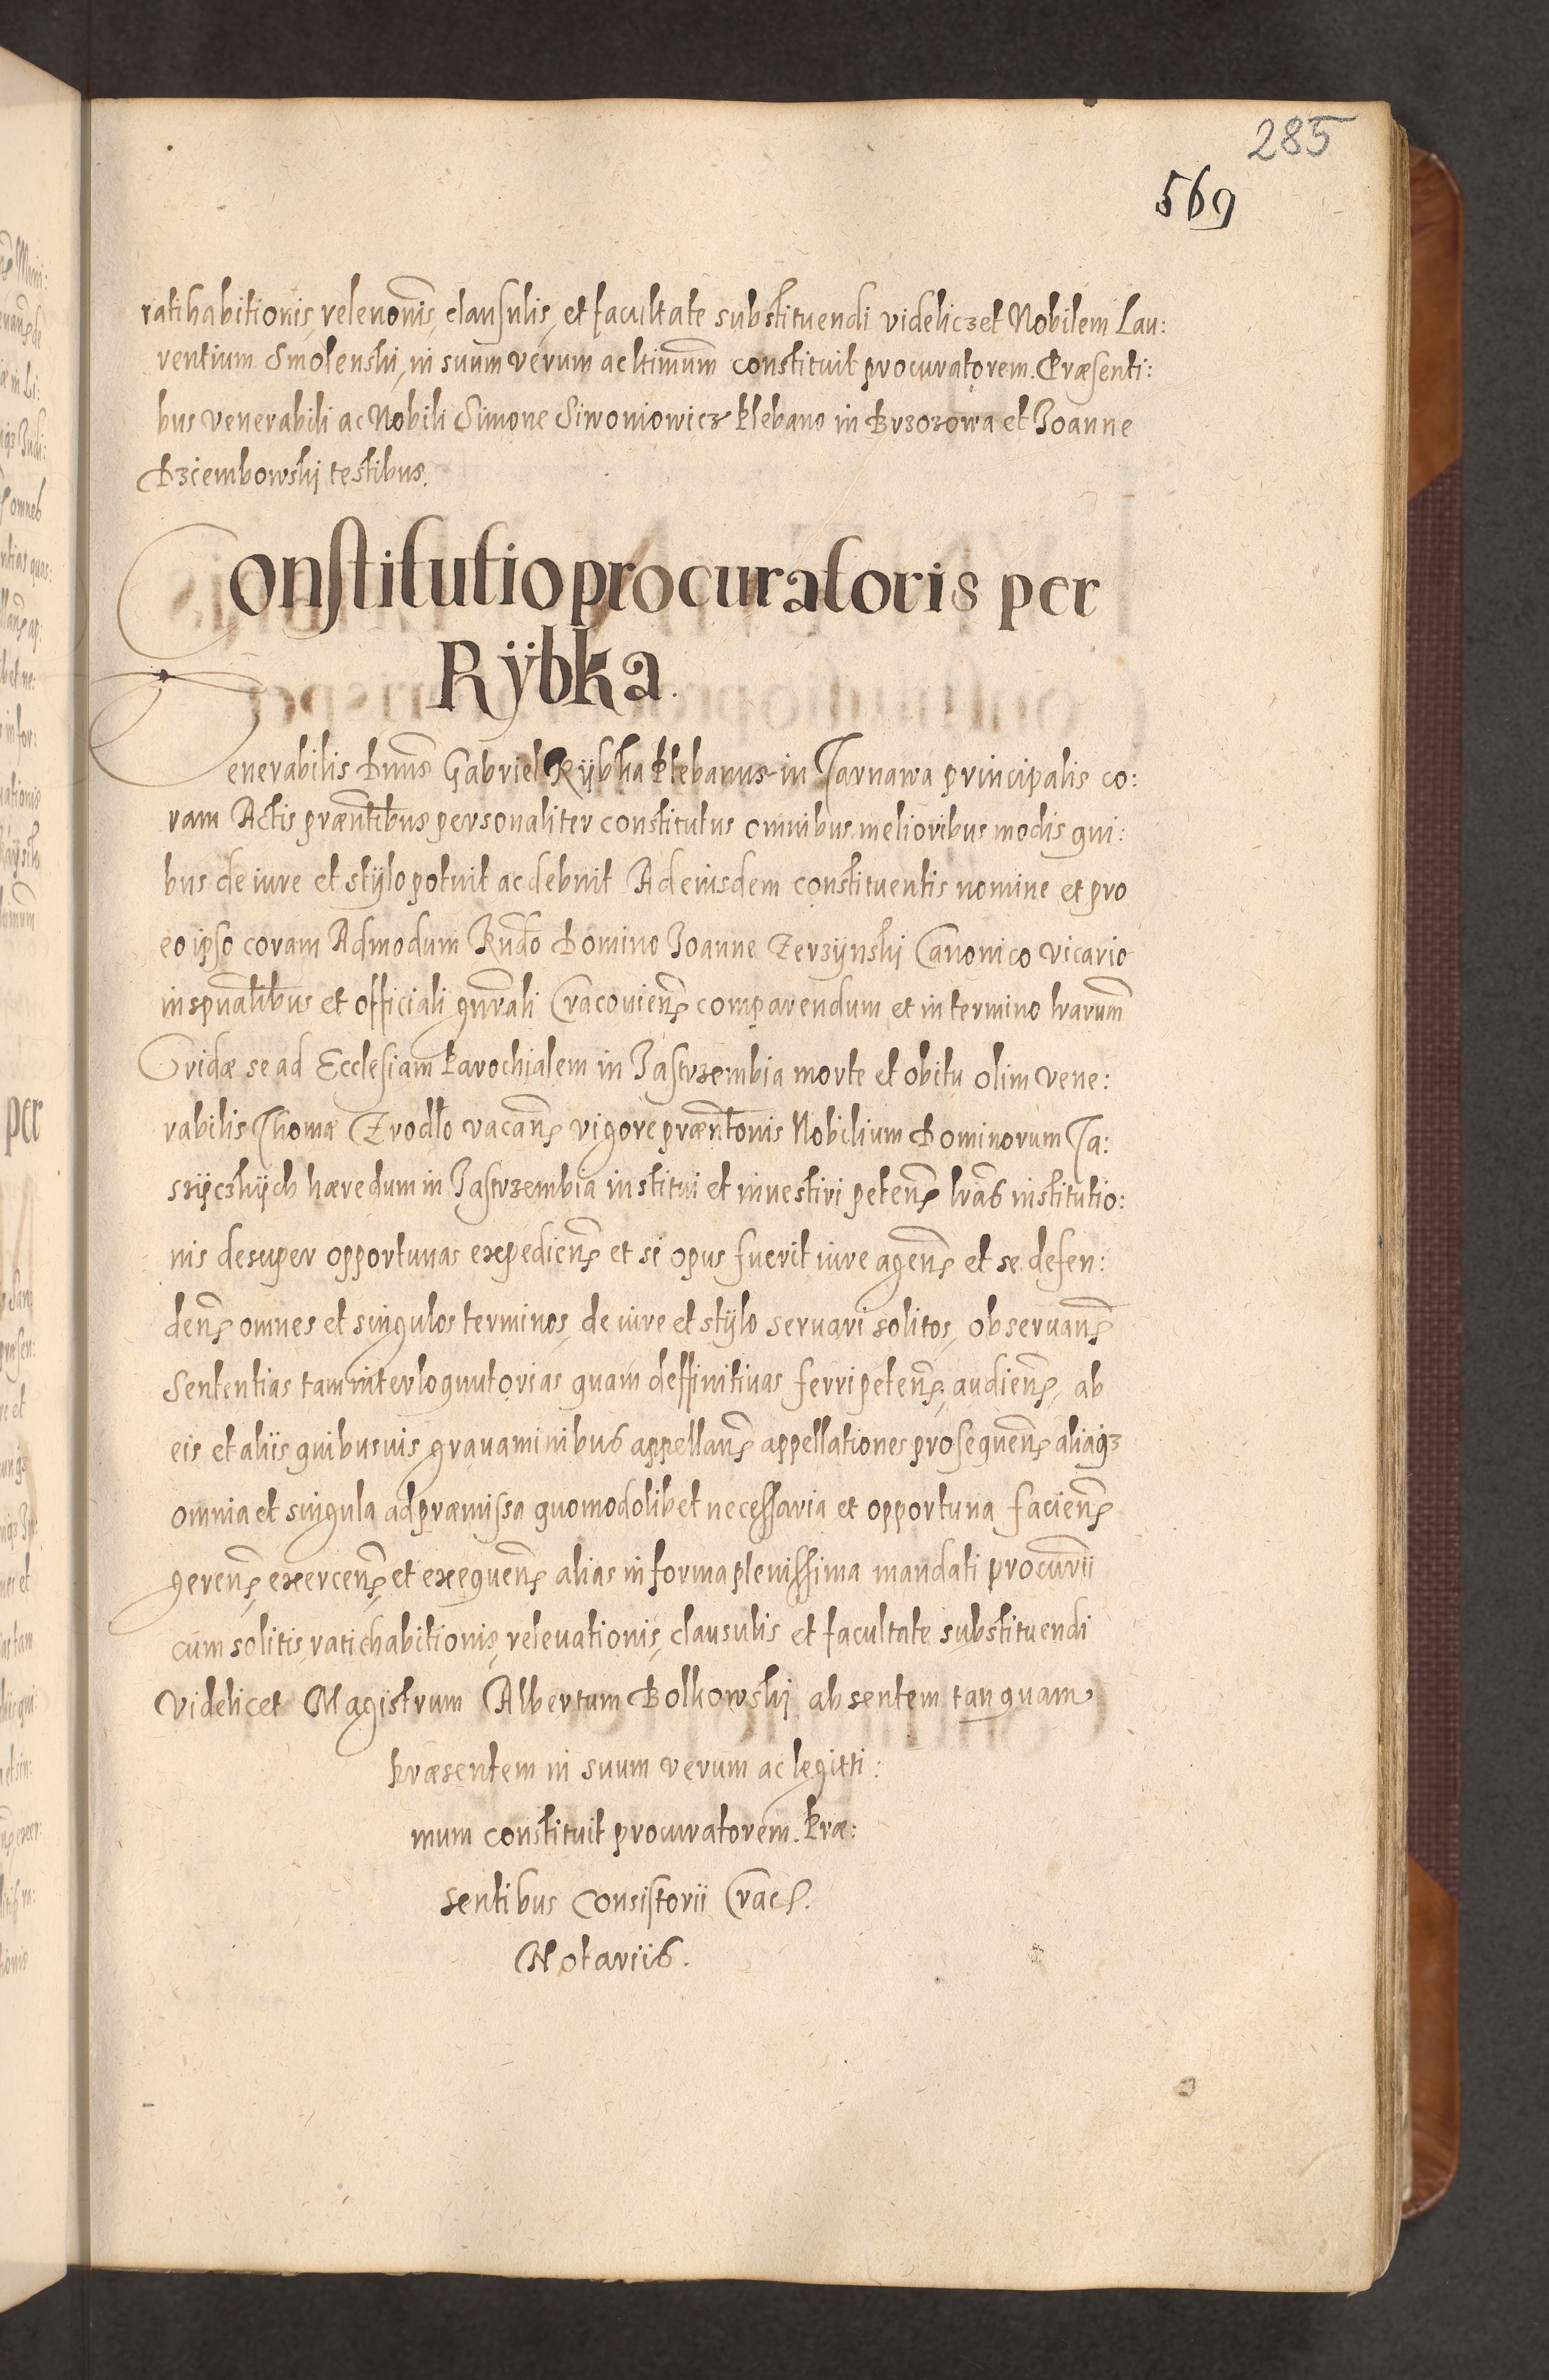 285
569
ratihabitionis, relevonis, clausulis, et facultate substituendi videliczet Nobilem Lau:
rentium Smolenski, in suum verum ac ltimum constituit procuratorem. Præsenti:
bus venerabili ac Nobili Simone Siwoniowicz plebano in Brzozowa et Joanne
Dziembowski testibus.
Constitutio procuratoris per
Rÿbka.
Venerabilis Dnus Gabriel Rÿbka plebanus in Tarnawa principalis co:
ram Actis præntibus personaliter constitutus omnibus melioribus modis qui:
bus de iure et stÿlo potuit ac debuit Ad eiusdem constituentis nomine et pro
eo ipso coram Admodum Rndo Domino Joanne Zerzÿnski Canonico vicario
in spualibus et officiali gnrali Cracovien comparendum et in termino lrarum
Cridæ se ad Ecclesiam Parochialem in Jastrzembia morte et obitu olim vene:
rabilis Thomæ Zrodlo vacan vigore præntonis Nobilium Dominorum Ta:
szÿczkÿch hæredum in Jastrzembia institui et investiri peten lras institutio:
nis desuper opportunas expedien et si opus fuerit iure agen et se defen:
den omnes et singulos terminos, de iure et stÿlo servari solitos, observan
Sententias tam interloquutorias quam deffinitivas ferri peten, audien, ab
eis et aliis quibusvis gravaminibus appellan appellationes prosequen aliaqz
omnia et singula ad præmissa quomodolibet necessaria et opportuna facien
geren, exercen, et exequen alias in forma plenissima mandati procurii
cum solitis, ratihabitionis, relevationis, clausulis et facultate substituendi
videlicet Magistrum Albertum Bolkowski absentem tanquam
Præsentem in suum verum ac legitti:
mum constituit procuratorem. Præ:
sentibus Consistorii Crac.
Notariis.